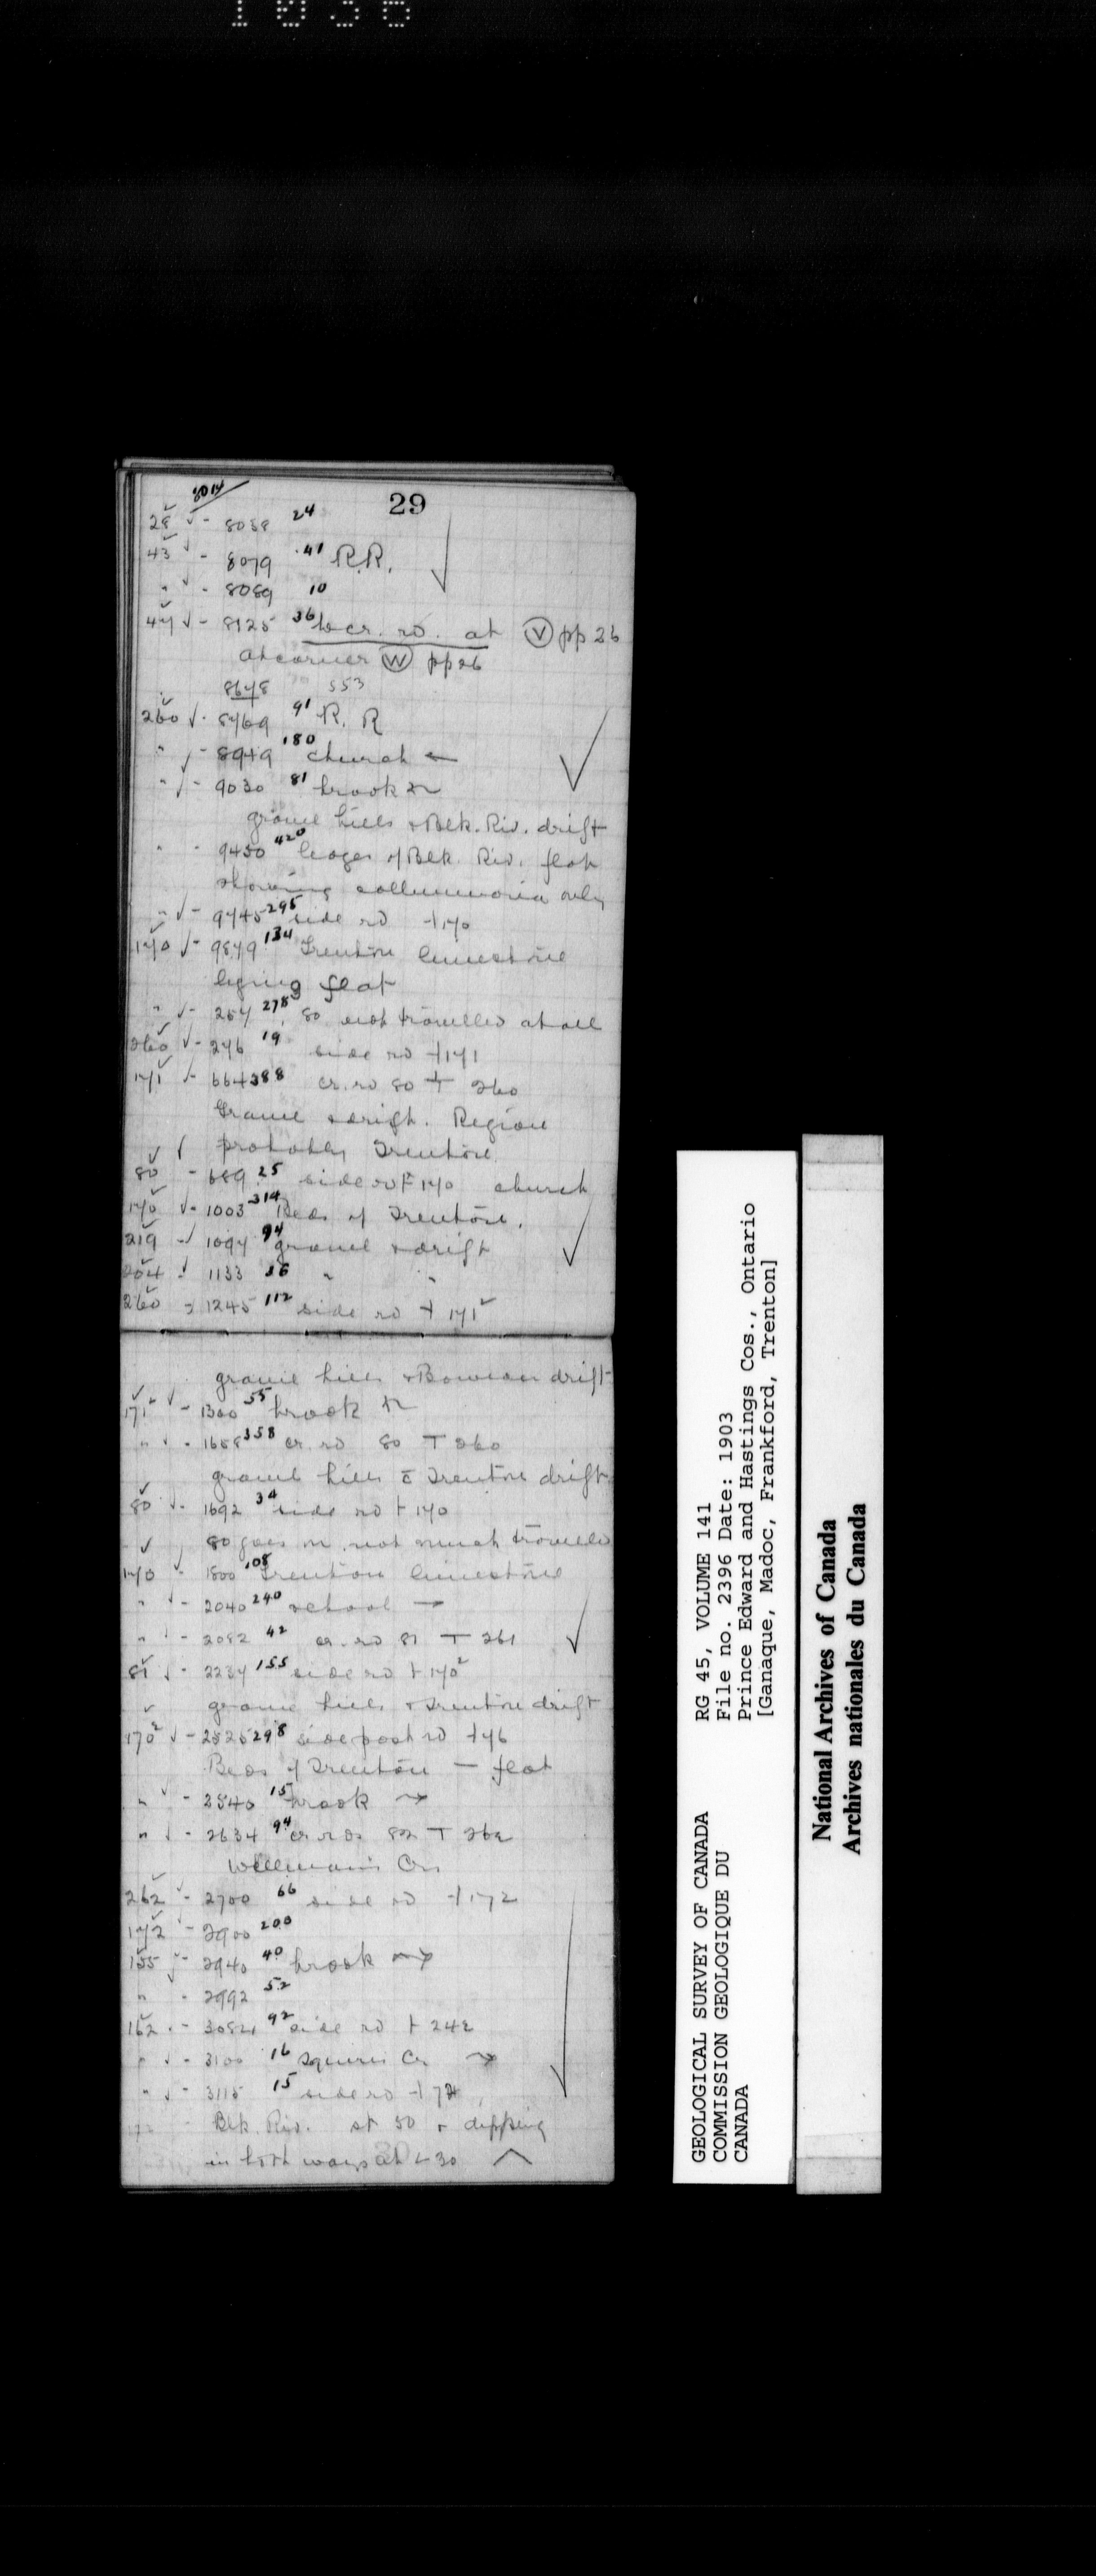 1036
29
8014
28 ✓ - 8038 24
43 ✓ - 8079 41 R.R.
" ✓ - 8089 10
44 ✓ - 8125 36 to cr. rd. at Ⓥ pp 26
At corner Ⓦ pp 26
8678 553
260 ✓ - 8769 91 R. R
" ✓ - 8949 180 church ←
" ✓ - 9030 81 brook
gravel hills + Blk. Riv. drift
" - 9450 420 ledges of Blk. Riv. flat
showing collumnaria only
" ✓ - 9745 295 side rd ⊣ 170
170 ✓ - 9879 134 Trenton limestone
lying flat
" ✓ - 257 278 80 not travelled at all
260 ✓ - 276 19 side rd ⊣ 171
171 ✓ - 664 388 cr. rd 80 ⊤ 260
Gravel + drift. Region
probably Trenton.
80 ✓ - 689 25 side rd ⊢ 170 church
170 ✓ - 1003 314 Beds of Trenton.
219 - ✓ 1097 94 gravel + drift
204 - ✓ 1133 36 " "
260 - 1245 112 side rd ⊣ 171²
gravel hills + Boulder drift
171² ✓ - 1300 55 brook
" ✓ - 1658 358 cr. rd 80 ⊤ 260
gravel hills c̄ Trenton drift
80 ✓ - 1692 34 side rd ⊢ 170
80 goes on not much travelled
170 ✓ - 1800 108 Trenton limestone
" ✓ - 2040 240 school →
" ✓ - 2082 42 cr. rd 81 ⊤ 261
81 ✓ - 2237 155 side rd ⊢ 170²
gravel hills + Trenton drift
170² ✓ - 2525 298 side post rd ⊣ 76
Beds of Trenton — flat
" ✓ - 2540 15 brook →
" ✓ - 2634 94 cr rds 82 ⊤ 262
Wellmans Crs
262 ✓ - 2700 66 side rd ⊣ 172
172 ✓ - 2900 200
155 ✓ - 2940 40 brook →
" - 2992 52
162 - 3084 92 side rd ⊢ 242
" ✓ - 3100 16 Squires Cr →
" ✓ - 3115 15 side rd ⊣ 72
Blk. Riv. st 50 + dipping
in both ways at ∠ 30 ^
GEOLOGICAL SURVEY OF CANADA
COMMISSION GEOLOGIQUE DU
CANADA
RG 45, VOLUME 141
File no. 2396 Date: 1903
Prince Edward and Hastings Cos., Ontario
[Ganaque, Madoc, Frankford, Trenton]
National Archives of Canada
Archives nationales du Canada